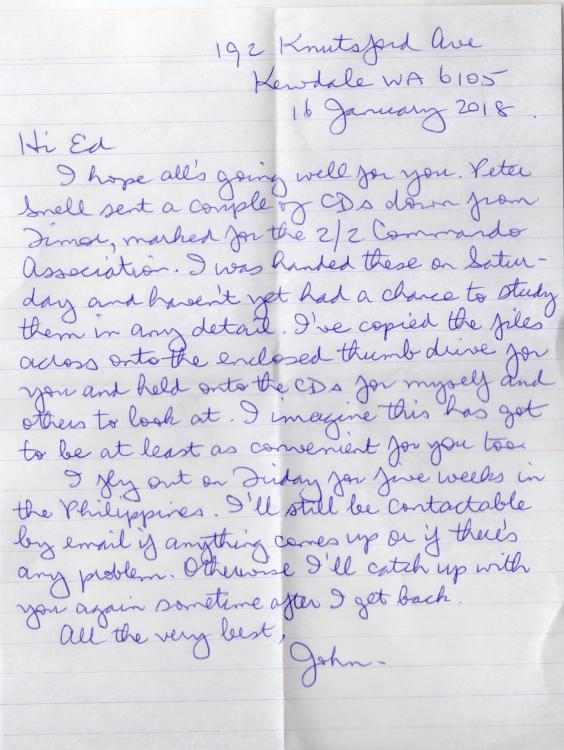 192 Knutsford Ave
Kewdale WA 6105
16 January 2018.
Hi Ed
I hope all's going well for you. Peter
Snell sent a couple of CDs down from
Timor, marked for the 2/2 Commando
Association. I was handed these on Satur-
day and haven't yet had a chance to study
them in any detail. I've copied the files
across onto the enclosed thumb drive for
you and held onto the CDs for myself and
others to look at. I imagine this has got
to be at least as convenient for you too.
I fly out on Friday for five weeks in
the Philippines. I'll still be contactable
by email if anything comes up or if there's
any problem. Otherwise I'll catch up with
you again sometime after I get back.
All the very best,
John.